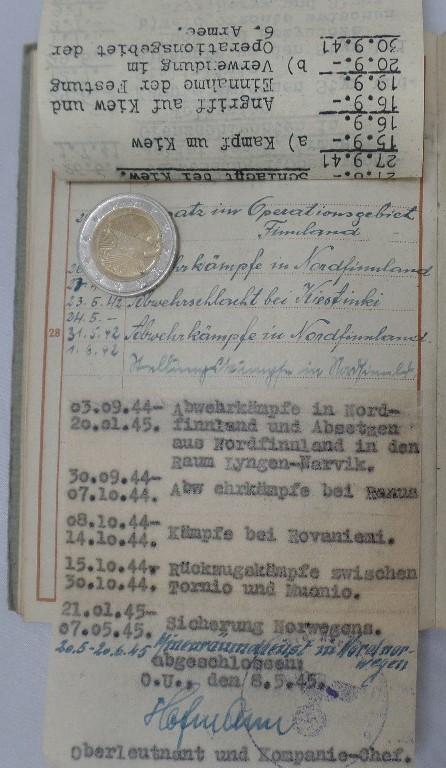 Schlacht bei Kiew.
27.9.41
15.9.- a) Kampf um Kiew
16.9
16.9.- Angriff auf Kiew und
19.9. Einnahme der Festung
20.9.- b) Verwendung im
30.9.41 Operationsgebiet der
6. Armee.
im Operationsgebiet
Finnland
kämpfe in Nordfinnland
23.5.42 Abwehrschlacht bei Kiestinki
24.5.-
31.5.42 Abwehrkämpfe in Nordfinnland.
1.6.42 Stellungskämpfe in Nordfinnld
28
03.09.44- Abwehrkämpfe in Nord-
20.01.45. finnland und Absetzen
aus Nordfinnland in den
Raum Lyngen-Narvik.
30.09.44-
07.10.44. Abw ehrkämpfe bei Ranua
08.10.44-
14.10.44. Kämpfe bei Rovaniemi.
15.10.44- Rückzugskämpfe zwischen
30.10.44. Tornio und Muonio.
21.01.45-
07.05.45. Sicherung Norwegens.
20.5-20.6.45 Minenräumdienst in Nordnor-
wegen
abgeschlossen:
O.U., den 8.5.45.
Hofmann
Oberleutnant und Kompanie-Chef.